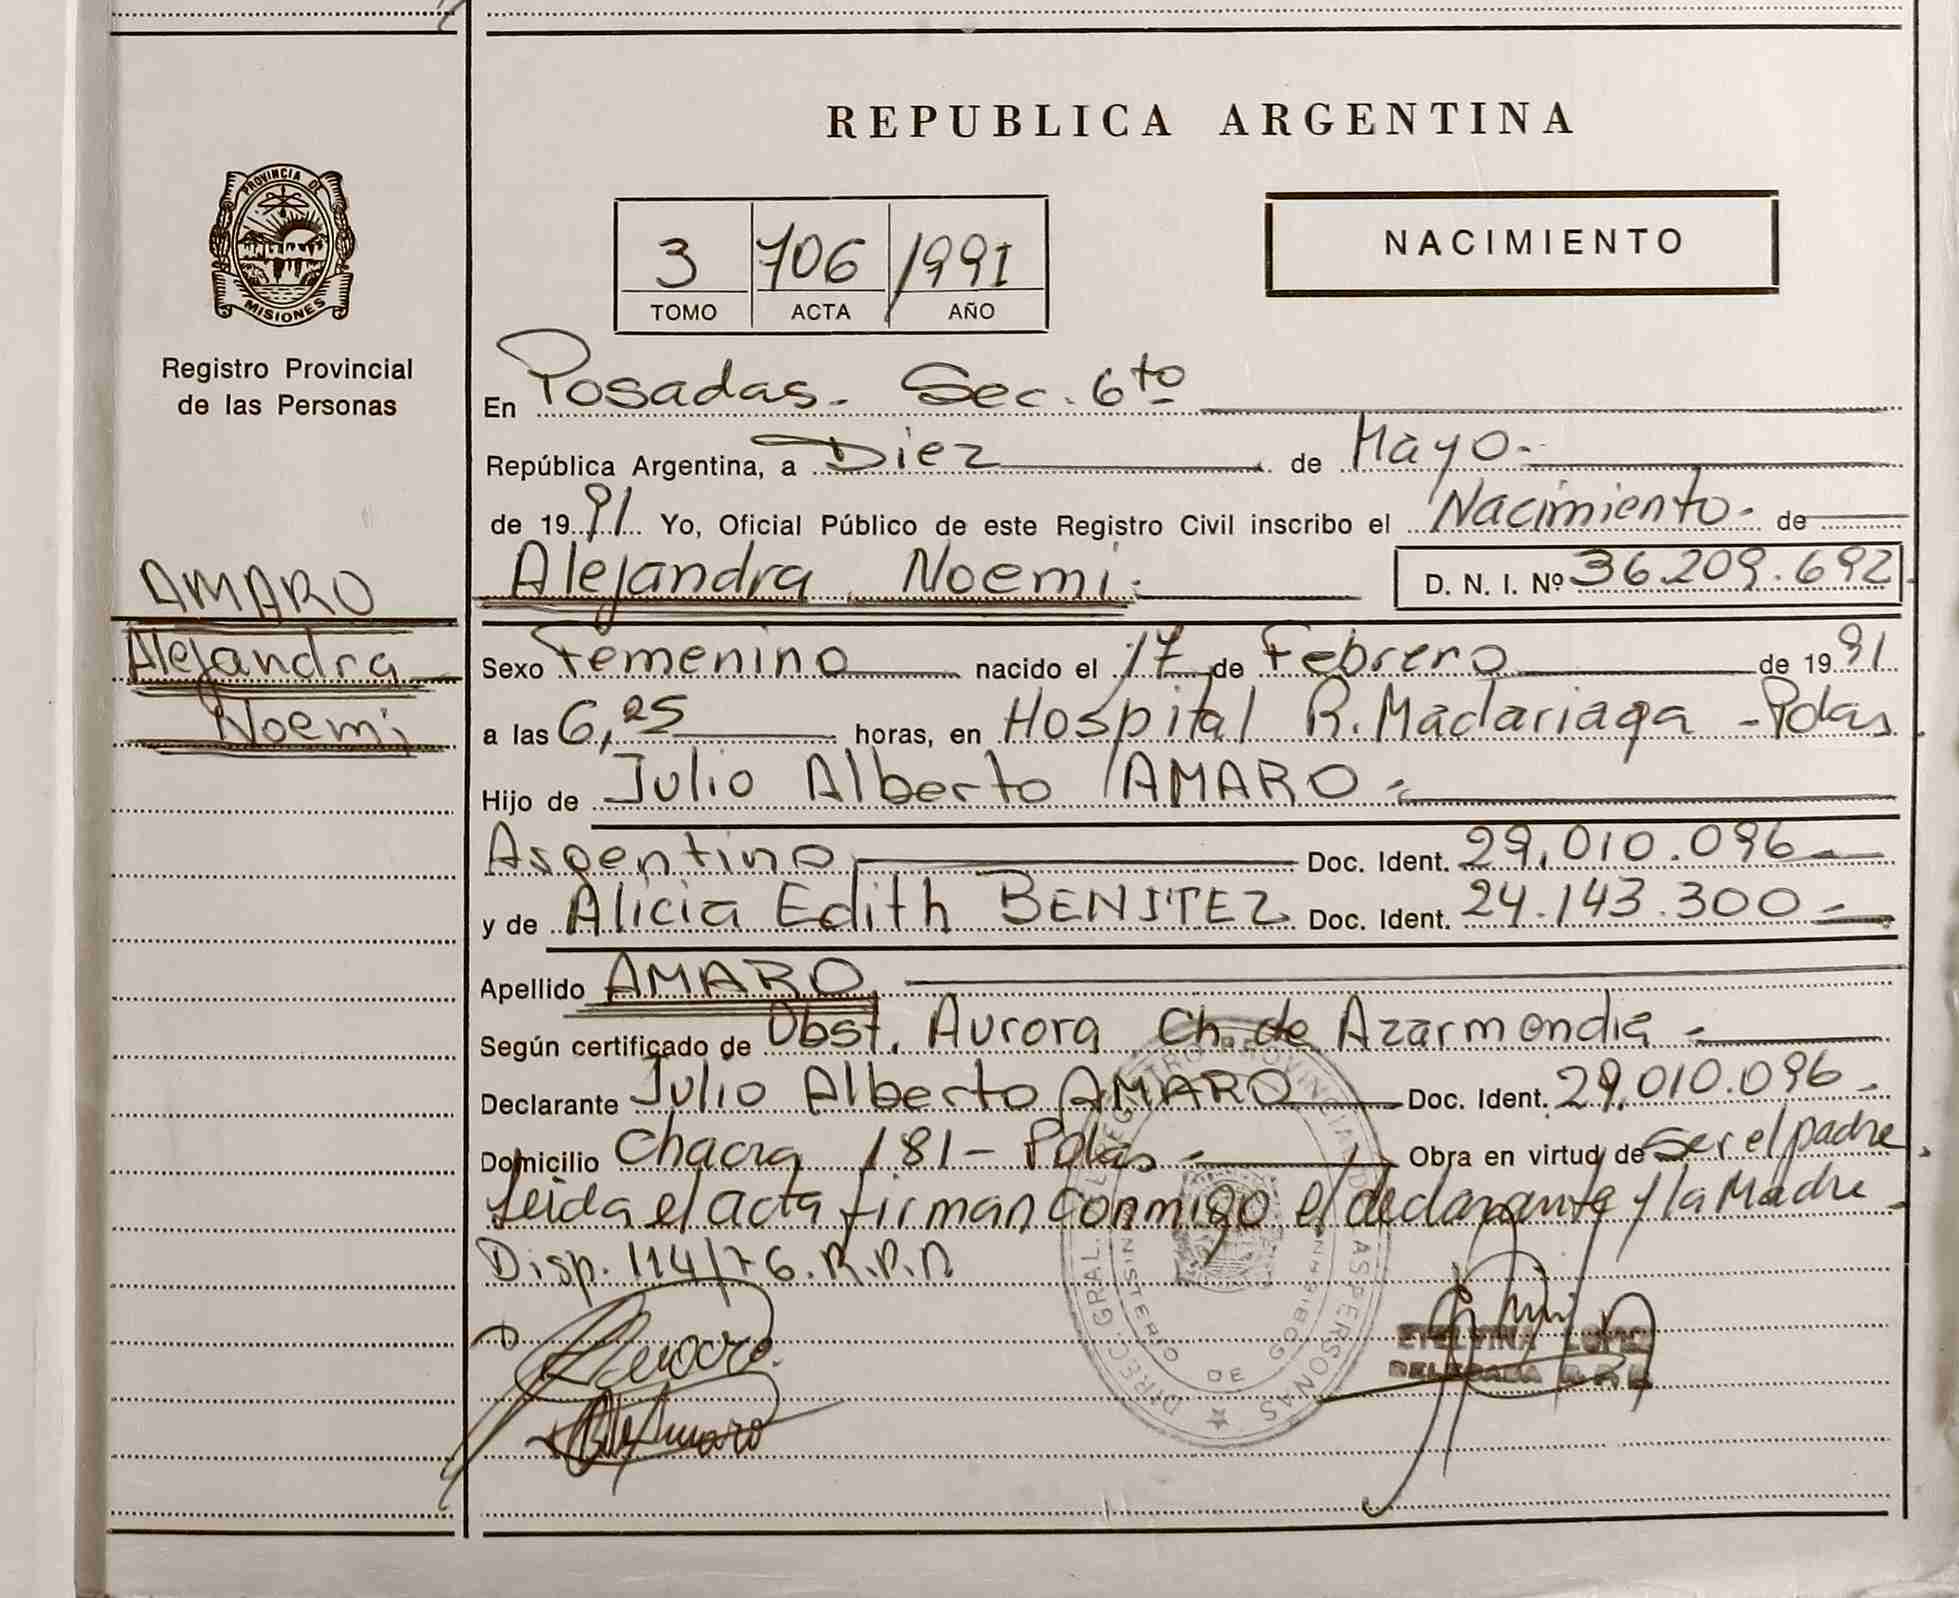 REPUBLICA ARGENTINA
PROVINCIA DE
MISIONES
Registro Provincial
de las Personas
3 706 1991
TOMO ACTA AÑO
NACIMIENTO
En Posadas. Sec. 6to
República Argentina, a Diez de Mayo.
de 1991 Yo, Oficial Público de este Registro Civil inscribo el Nacimiento de
AMARO
Alejandra
Noemi
Alejandra Noemi. D. N. I. Nº 36.209.692
Sexo Femenino nacido el 17 de Febrero de 1991
a las 6,25 horas, en Hospital R. Madariaga - Pdas.
Hijo de Julio Alberto AMARO
Argentino Doc. Ident. 29.010.096
y de Alicia Edith BENITEZ Doc. Ident. 24.143.300
Apellido AMARO
Según certificado de Obst. Aurora Ch. de Azarmendia
Declarante Julio Alberto AMARO Doc. Ident. 29.010.096
Domicilio Chacra 181 - Pdas Obra en virtud de Ser el padre.
Leida el acta firman conmigo el declarante y la Madre
Disp. 114/76. R.P.
DIREC. GRAL. DEL REGISTRO PROVINCIAL DE LAS PERSONAS
MINISTERIO DE GOBIERNO
ETELVINA LOPEZ
DELEGADA